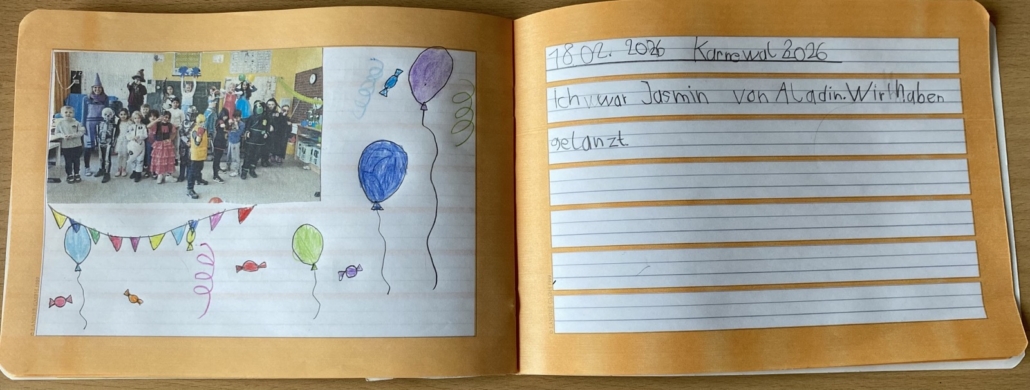 18.02. 2026 Karnewal 2026
Ich war Jasmin von Aladin. Wir haben
getanzt.